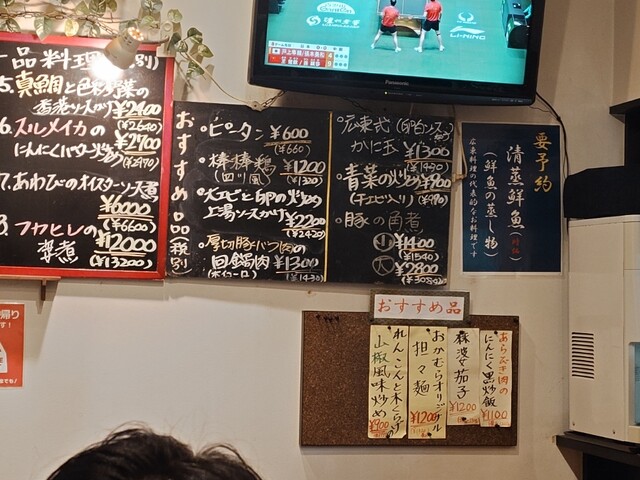 一品料理
別)
5.真鯛と色彩野菜の
香港ソースかけ ¥2400
(¥2640)
6.スルメイカの ¥2700
にんにくバター炒め (¥2970)
7.あわびのオイスターソース煮
¥6000
(¥6600)
8.フカヒレの ¥12000
姿煮 (¥13200)
おすすめ品(税別)
・ピータン ¥600
(¥660)
・棒棒鶏 ¥1200
(四川風) (¥1320)
・大エビと卵の炒め
上湯ソースかけ ¥2200
(¥2420)
・厚切豚バラ肉の
回鍋肉 ¥1300
(ホイコーロ) (¥1430)
・広東式
かに玉 ¥1300
(¥1430)
・青菜の炒め ¥900
(干エビ入り) (¥990)
・豚の角煮
小 ¥1400
(¥1540)
大 ¥2800
(¥3080)
要予約
清蒸鮮魚
(鮮魚の蒸し物)
広東料理の代表的なお料理です
Panasonic
LI-NING
おすすめ品
あらびき肉の
にんにく黒炒飯
¥1100
麻婆茄子
¥1200
おかむらオリジナル
担々麺
¥1200
れんこんと木くらげの
山椒風味炒め
¥900